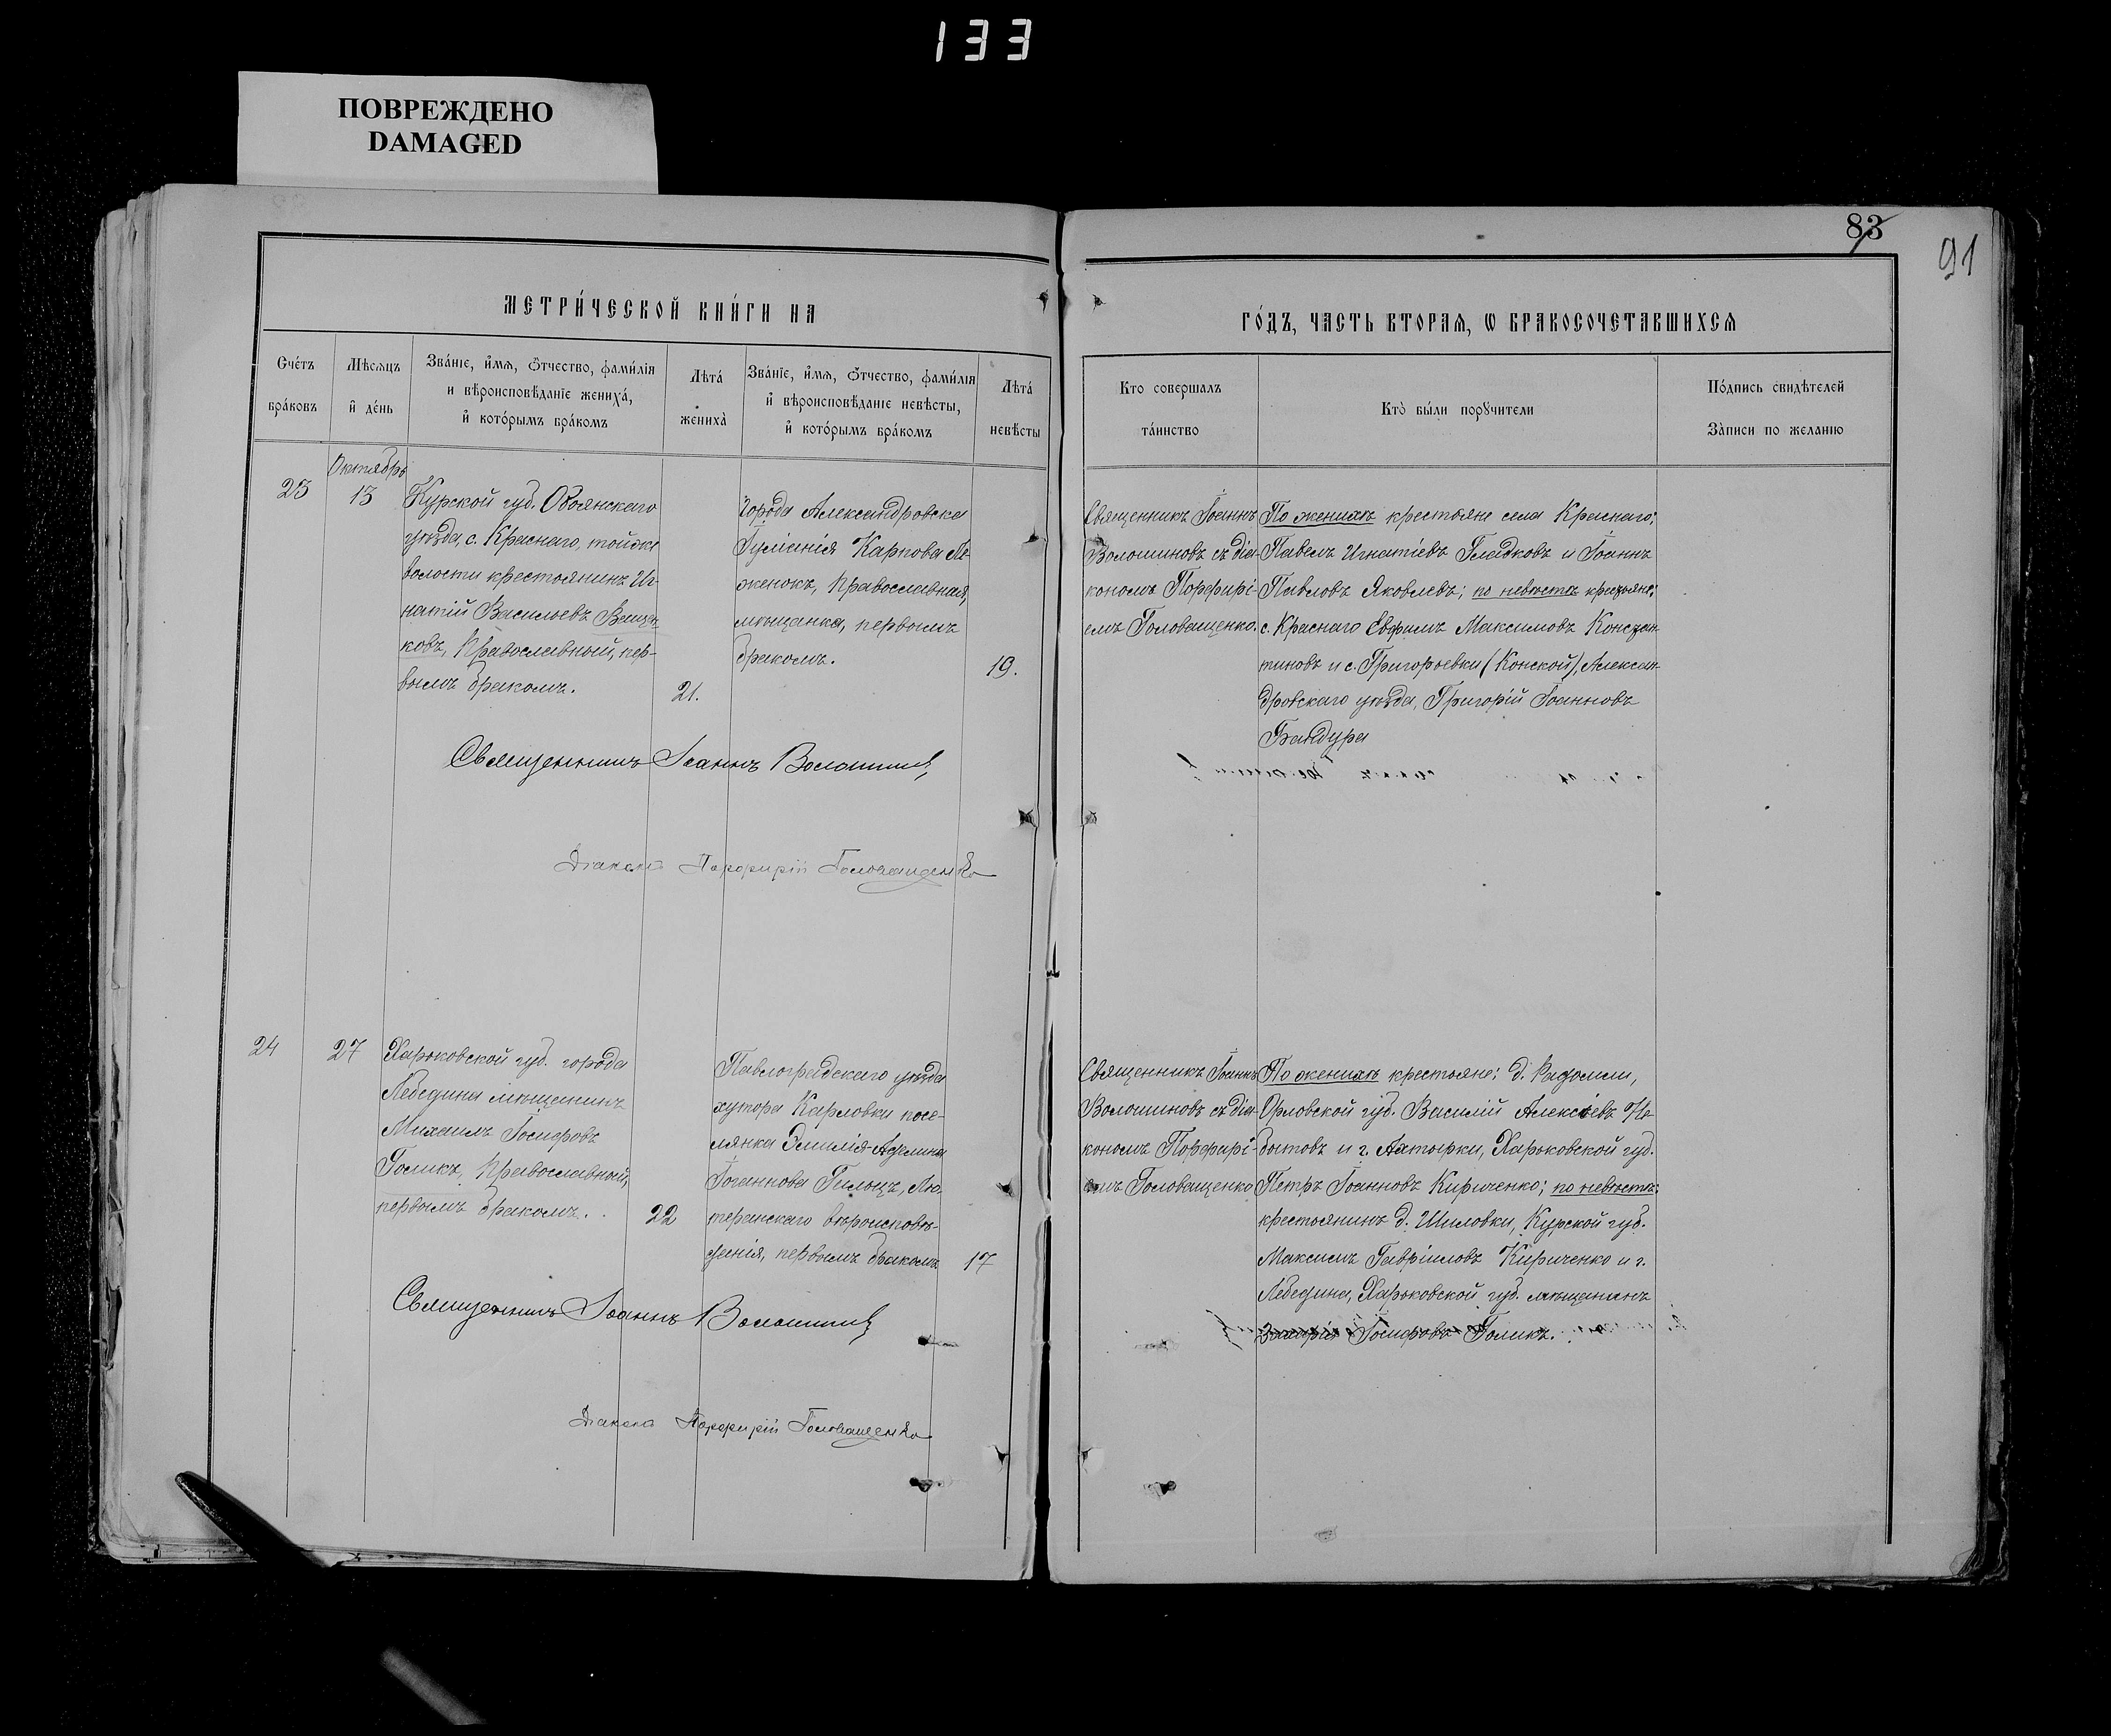 133
ПОВРЕЖДЕНО
DAMAGED
83
91
МЕТРИ́ЧЕСКОЙ КНИ́ГИ НА
ГО́ДЪ, ЧАСТЬ ВТОРАѦ, Ѡ БРАКОСОЧЕТАВШИХСѦ
Сче́тъ
бра́ковъ
Мѣсѧцъ
и҆ де́нь
Зва́нїе, и҆́мѧ, ѻ҆́тчество, фами́лїѧ
и вѣроисповѣ́данїе жениха̀,
и҆ кото́рымъ бра́комъ
Лѣта́
жениха̀
Зва́нїе, и҆́мѧ, ѻ҆́тчество, фами́лїѧ
и҆ вѣроисповѣ́данїе невѣ́сты,
и҆ кото́рымъ бра́комъ
Лѣта́
невѣ́сты
Кто совершалъ
та́инство
Кто̀ бы́ли порꙋчи́тели
По́дпись свидѣ́телей
За́писи по желанїю
Октябрь
23
13
Курской губ. Обоянскаго
уѣзда, с. Краснаго, тойже
волости крестьянинъ Иг-
натій Васильевъ
ковъ, Православный, пер-
вымъ бракомъ.
21.
Города Александровска
Іуліанія Карпова Ле-
женокъ, Православная,
мѣщанка, первымъ
бракомъ.
19.
Священникъ Іоаннъ
Волошиновъ съ діа-
кономъ Порфирі-
емъ Головащенко.
По женихѣ крестьяне села Краснаго:
Павелъ Игнатіевъ Гладковъ и Іоаннъ
Павловъ Яковлевъ; по невѣстѣ крестьяне:
с. Краснаго Евфимъ Максимовъ Констан-
тиновъ и с. Григорьевки (Конской), Алексан-
дровскаго уѣзда, Григорій Іоанновъ
Бандура
Священникъ Іоаннъ Волошиновъ
Діаконъ Порфирій Головащенко
24
27
Харьковской губ. города
Лебедина мѣщанинъ
Михаилъ Іосифовъ
Голикъ, Православный,
первымъ бракомъ.
22
Павлоградскаго уѣзда
хутора Карловки посе-
лянка Эмилія-Аделина
Іоганнова Гильцъ, Лю-
теранскаго вѣроисповѣ-
данія, первымъ бракомъ
17
Священникъ Іоаннъ
Волошиновъ съ діа-
кономъ Порфирі-
емъ Головащенко
По женихѣ крестьяне: д. Радомли,
Орловской губ. Василій Алексіевъ Не-
бытовъ и г. Ахтырки, Харьковской губ.
Петръ Іоанновъ Кириченко; по невѣстѣ:
крестьянинъ д. Шиловки, Курской губ.
Максимъ Гавріиловъ Кириченко и г.
Лебедина, Харьковской губ. мѣщанинъ
Захарія Іосифовъ Голикъ.
Священникъ Іоаннъ Волошиновъ
Діаконъ Порфирій Головащенко